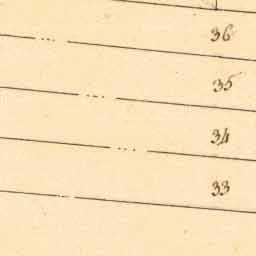 36
35
34
33